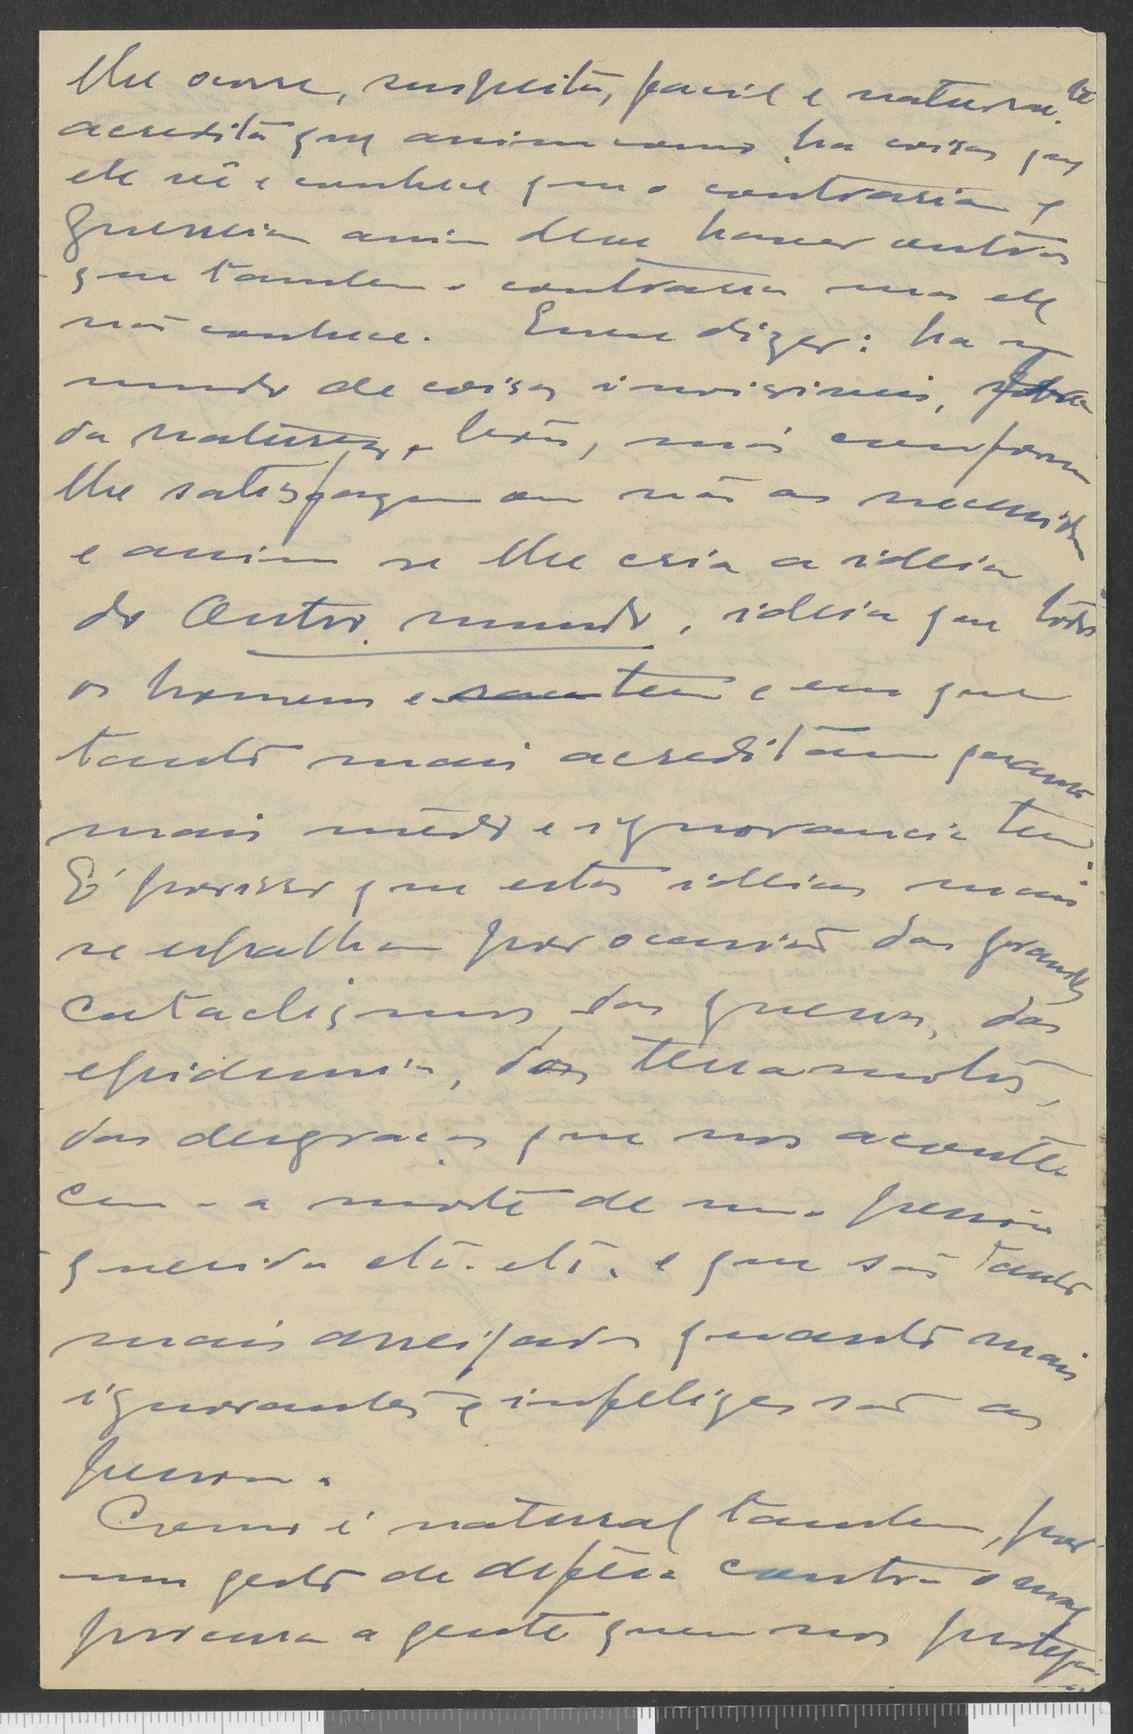 lhe ocorre, suspeita, facil e natural.te
acredita que assim como ha coisas que
ele vê e conhece que o contrariam e
guerreiam assim deve haver outras
que tambem o contrariam mas ele
não conhece. Quere dizer: ha um
mundo de coisas invisiveis, fora
da natureza, bôas, más conforme
lhe satisfazem ou não as necessida
e assim se lhe cria a ideia
do Outro mundo, ideia que todos
os homens tem e em que
tanto mais acreditam quanto
mais mêdo e ignorancia tem.
É porisso que estas ideias mais
se espalham por ocasião dos grandes
cataclismos, das guerras, das
epidemias, dos terramotos,
das desgraças que nos aconte
cem - a morte de uma pessôa
querida etc. etc. e que são tanto
mais arreigadas quanto mais
ignorantes e infelizes são as
pessoas.
Como é natural tambem, por
um gesto de defesa contra o mal
procura a gente quem nos proteja